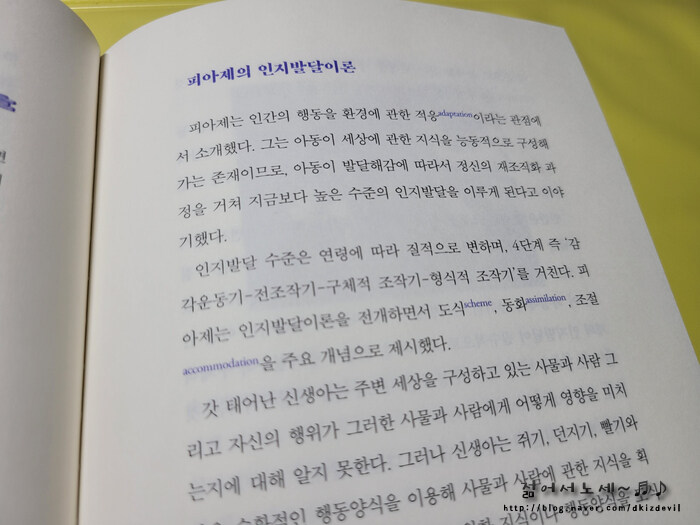 피아제의 인지발달이론
피아제는 인간의 행동을 환경에 관한 적응adaptation이라는 관점에
서 소개했다. 그는 아동이 세상에 관한 지식을 능동적으로 구성해
가는 존재이므로, 아동이 발달해감에 따라서 정신의 재조직화 과
정을 거쳐 지금보다 높은 수준의 인지발달을 이루게 된다고 이야
기했다.
인지발달 수준은 연령에 따라 질적으로 변하며, 4단계 즉 '감
각운동기-전조작기-구체적 조작기-형식적 조작기'를 거친다. 피
아제는 인지발달이론을 전개하면서 도식scheme, 동화assimilation, 조절
accommodation을 주요 개념으로 제시했다.
갓 태어난 신생아는 주변 세상을 구성하고 있는 사물과 사람 그
리고 자신의 행위가 그러한 사물과 사람에게 어떻게 영향을 미치
는지에 대해 알지 못한다. 그러나 신생아는 쥐기, 던지기, 빨기와
같은 순환적인 행동양식을 이용해 사물과 사람에 관한 지식을 획
지식이나 행동양식을
젊어서노세~♬♪
http://blog.naver.com/dkizdevil